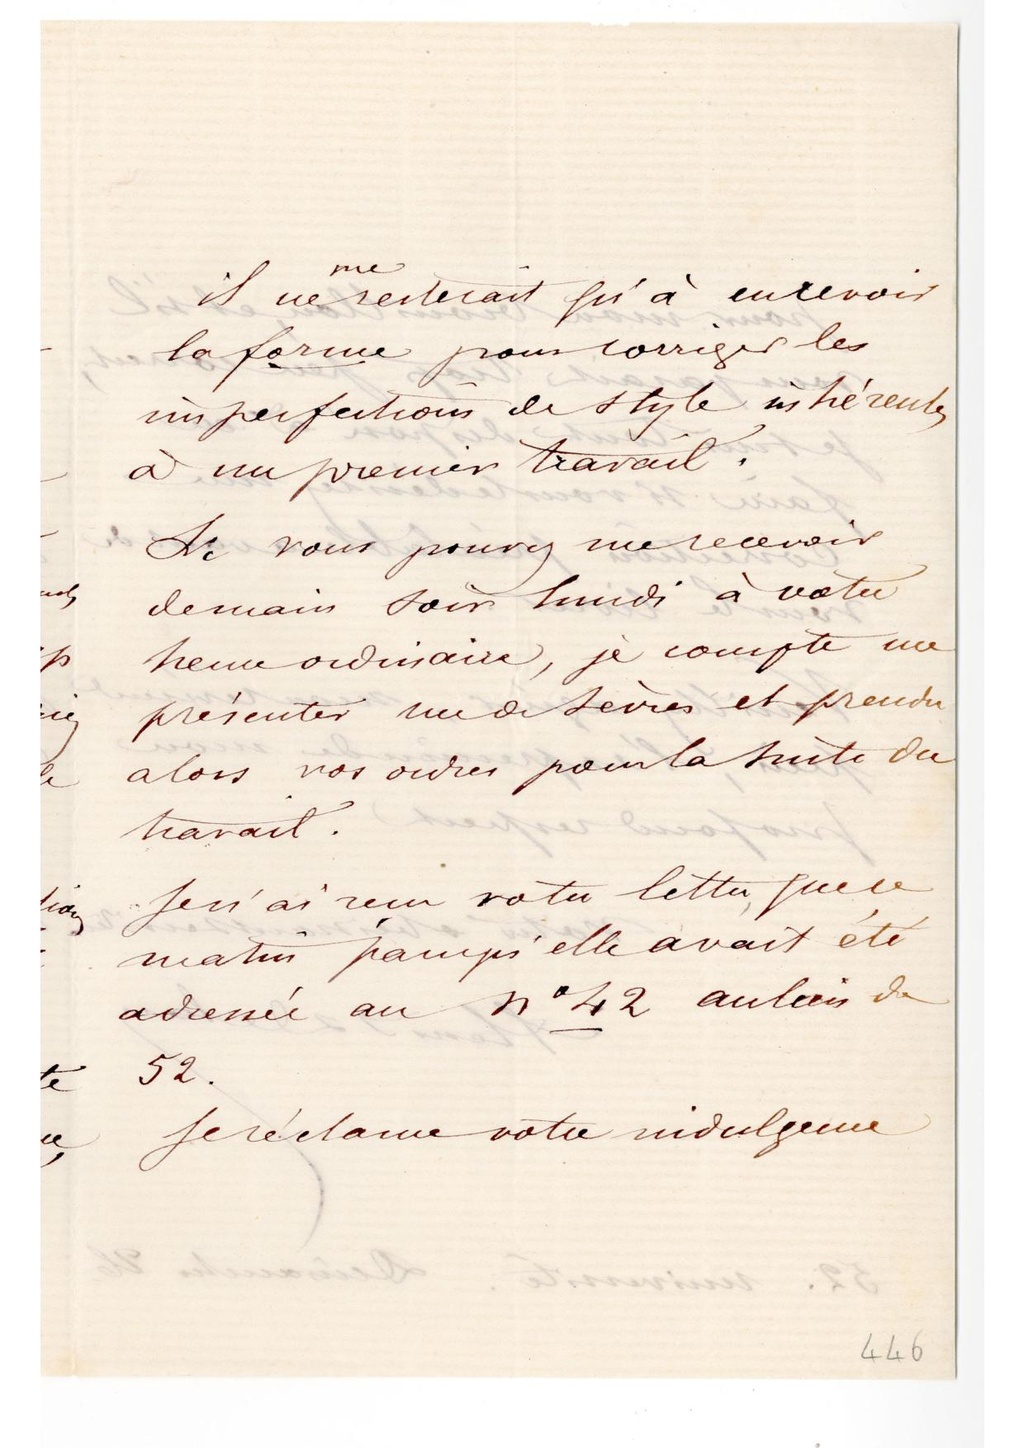 il ne me resterait qu'à en revoir
la forme pour corriger les
imperfections de style inhérentes
à un premier travail.
Si vous pouvez me recevoir
demain soir lundi à votre
heure ordinaire, je compte me
présenter rue de Sèvres et prendre
alors vos ordres pour la suite du
travail.
Je n'ai reçu votre lettre, que ce
matin parcequ'elle avait été
adressée au N° 42 au lieu de
52.
Je réclame votre indulgence
446